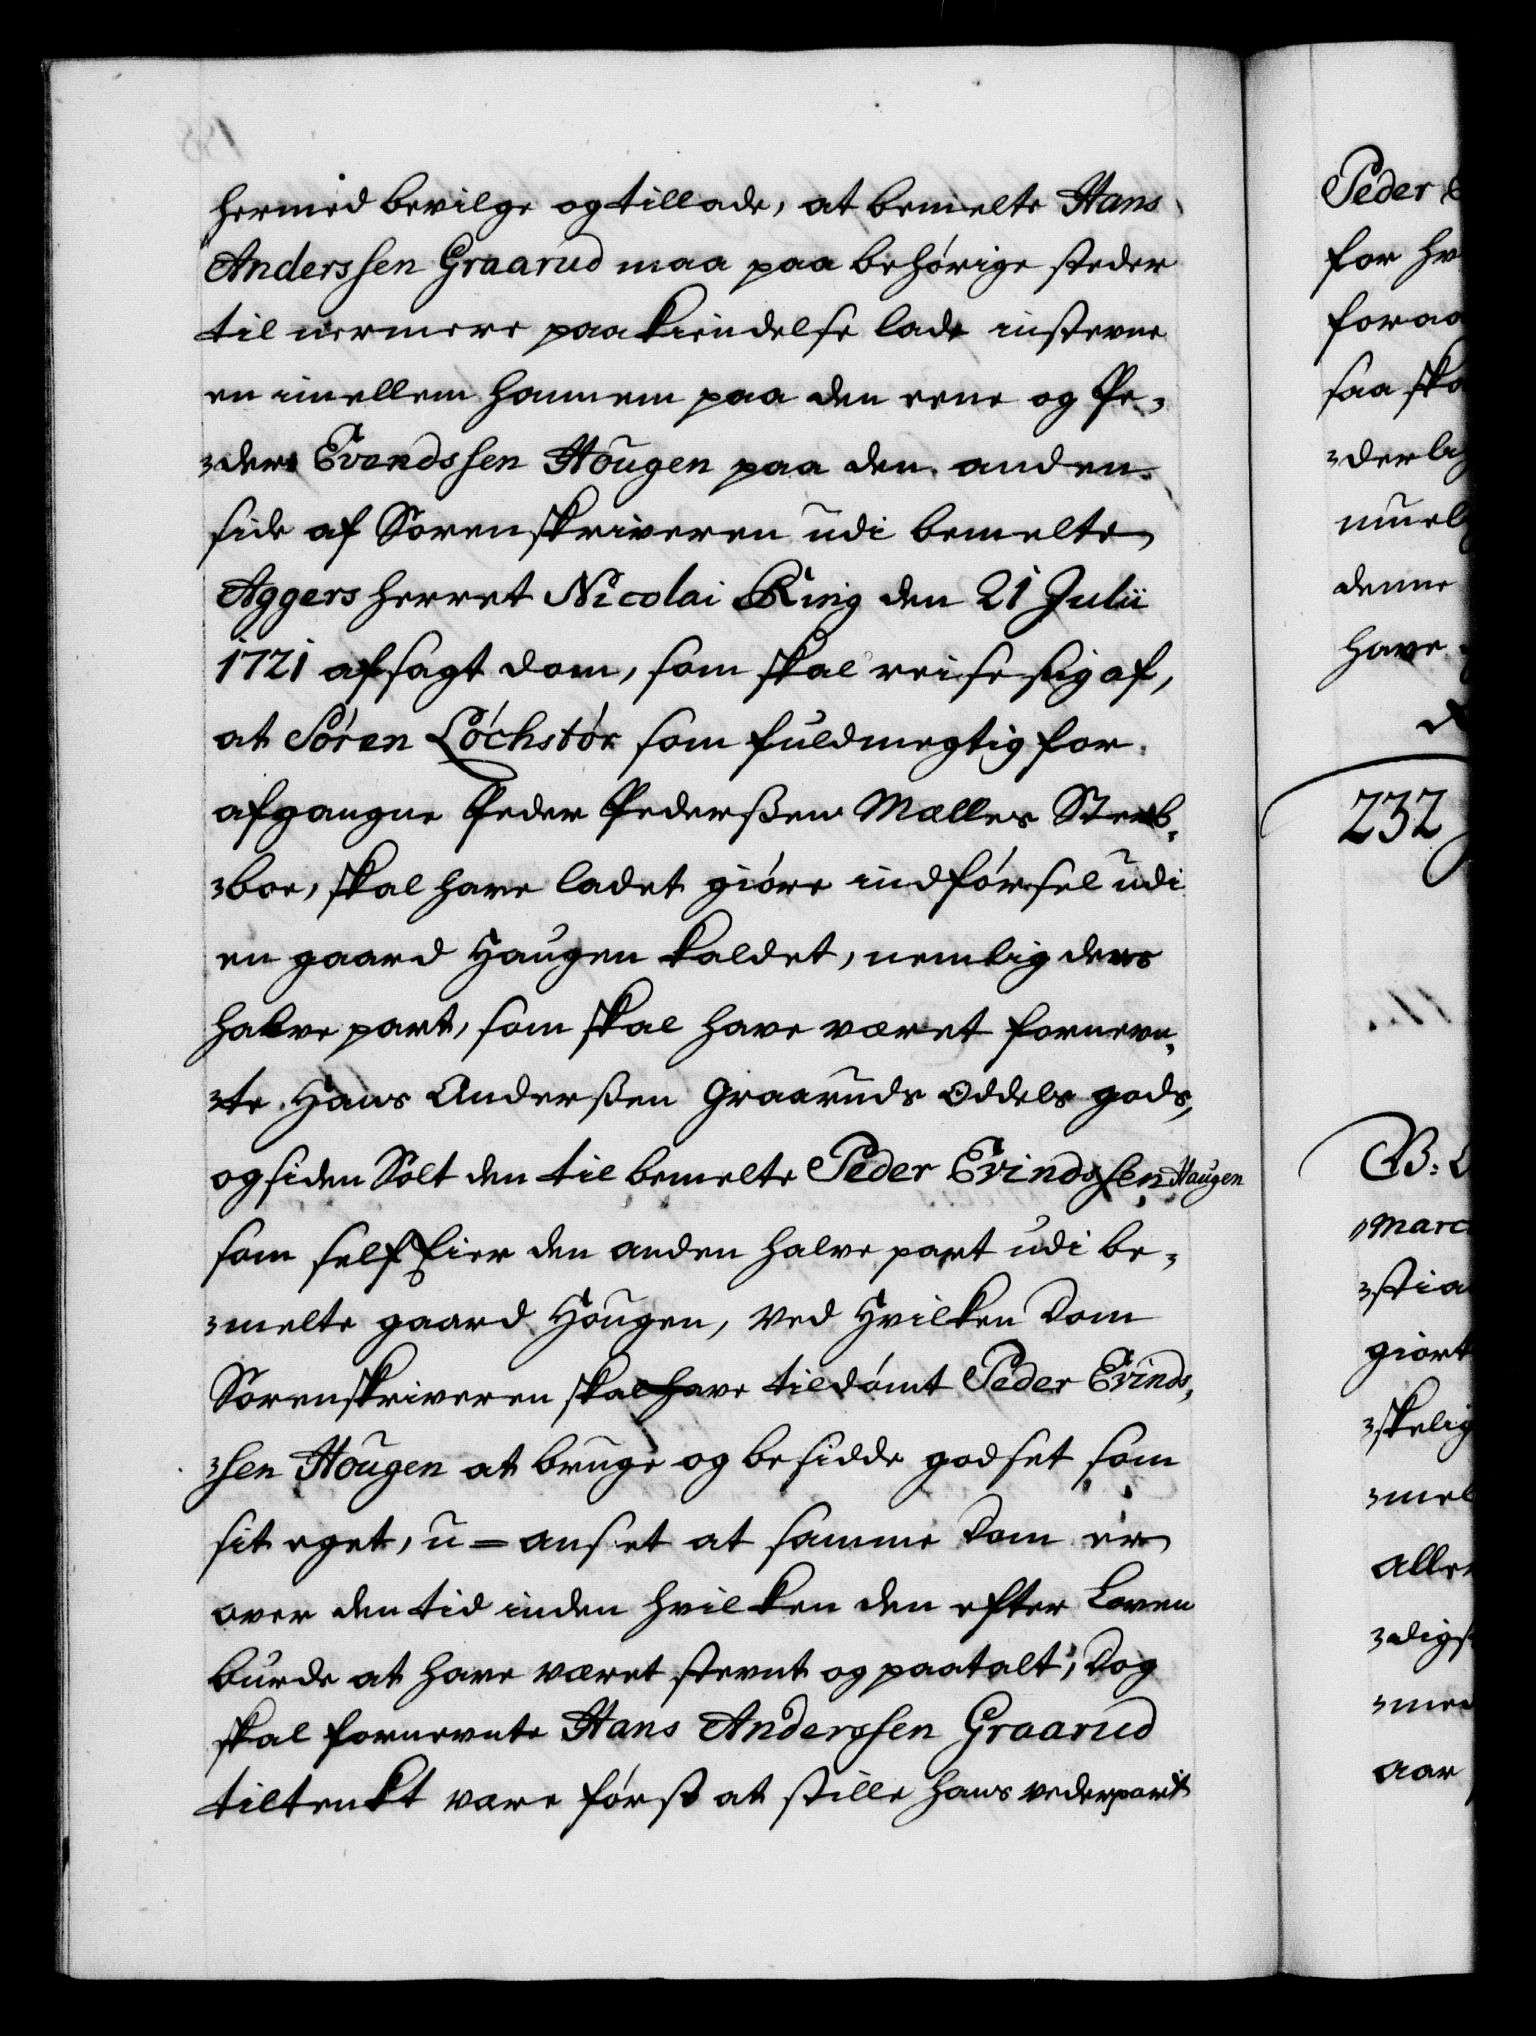 hermed bevilge og tillade, at bemelte Hans
Anderssen Graarud maa paa behørige steder
til nermere paakiendelse lade instevne
en imellem hannem paa den eene og Pe-
-der Evendssen Hougen paa den anden
side af Sorenskriveren udi bemelte
Aggers herret Nicolai Ring den 21 Julii
1721 afsagt dom, som skal reise sig af,
at Søren Løchstør som fuldmegtig for
afgangne Peder Pederssen Møllers Sterb-
-boe, skal have ladet giøre indførsel udi
en gaard Haugen kaldet, nemlig dens
halve part, som skal have været forneven-
-te Hans Anderssen Graaruds Oddels gods,
og siden Solt den til bemelte Peder Evindssen Haugen
som self Eier den anden halve part udi be-
-melte gaard Hougen, ved Hvilken Dom
Sorenskriveren skal have tildømt Peder Evinds-
-sen Hougen at bruge og besidde godset som
sit eget, u-anset at samme Dom er
over den tid inden hvilken den efter Loven
burde at have været stevnt og paatalt, Dog
skal fornevnte Hans Anderssen Graarud
tiltenkt være først at stille hans vederpart
Peder
for
foraa
saa ska
-derli
muel
denne
have
232
B:
Marc
-stia
giort
-skelig
-mel
aller
-digst
-mer
aar